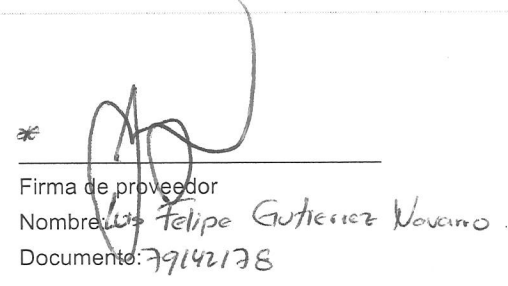 *
Firma de proveedor
Nombre: Luis Felipe Gutierrez Navarro.
Documento: 79142178